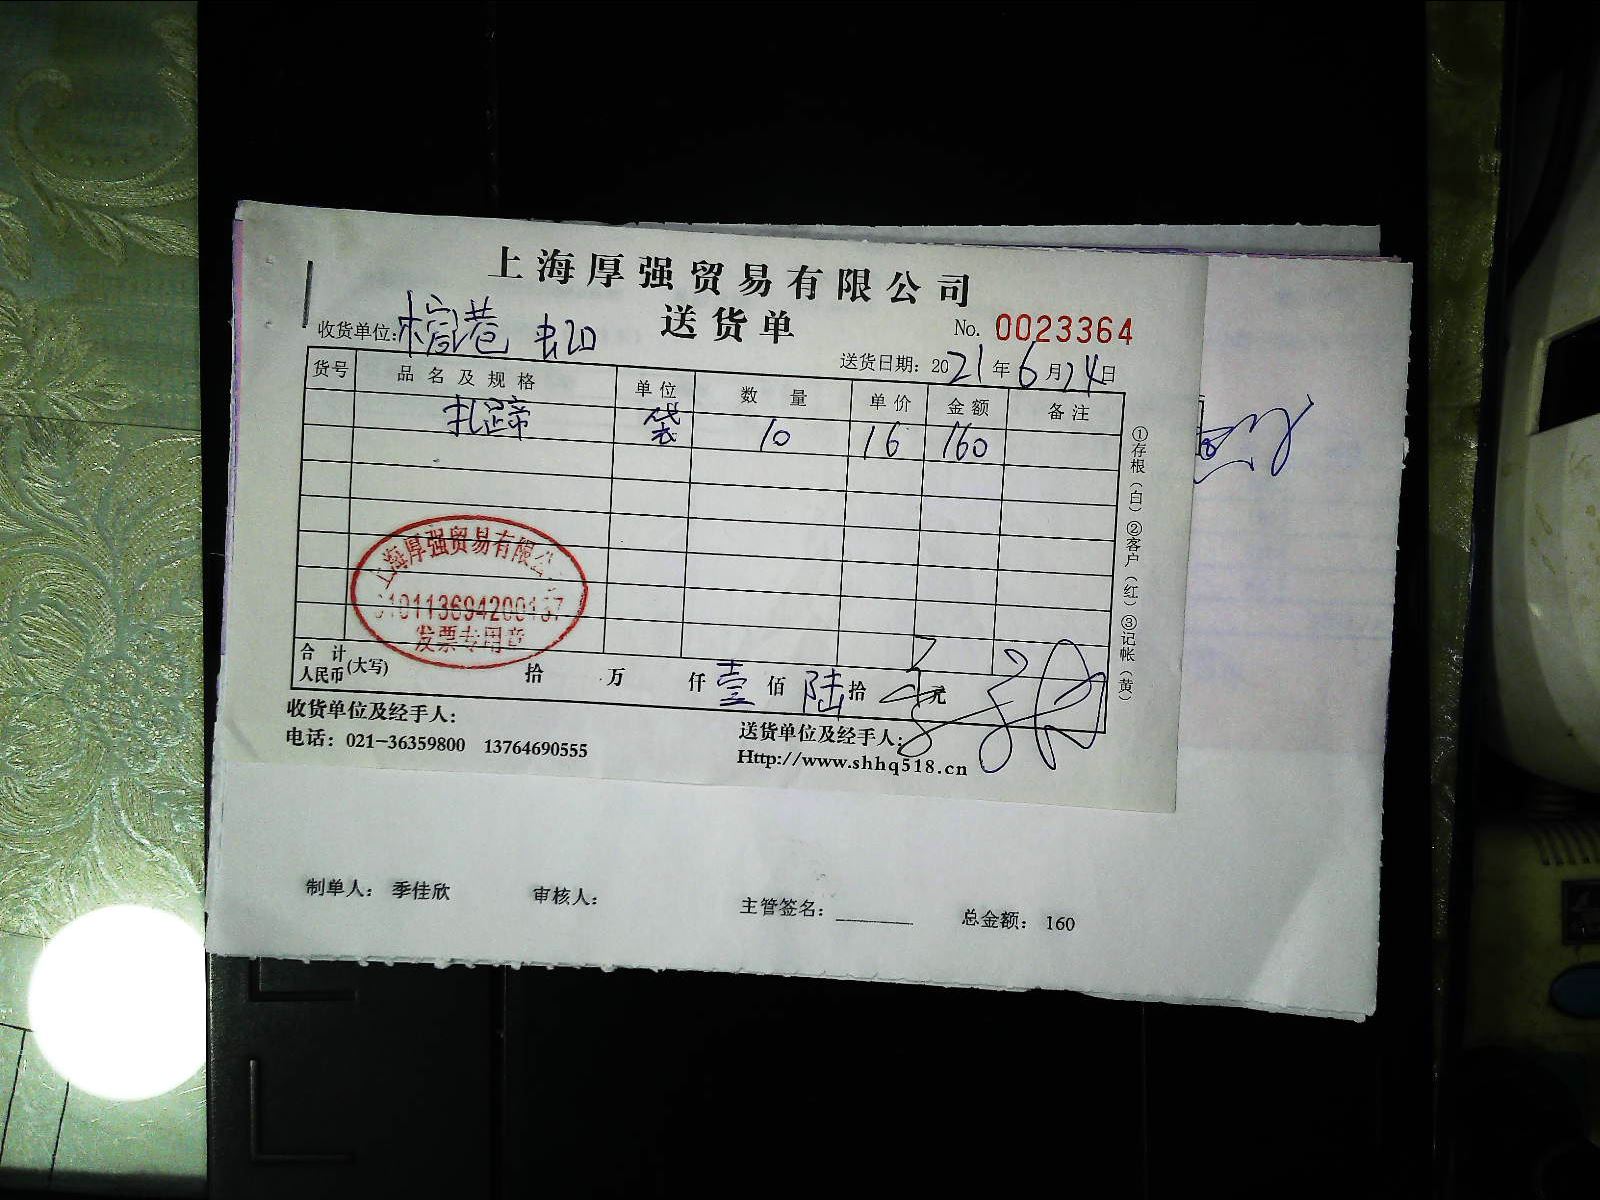 上海厚强贸易有限公司
送货单
No. 0023364
收货单位:
送货日期: 2021年6月24日
货号 品名及规格 单位 数量 单价 金额 备注
扎蹄 袋 10 16 160
①存根(白) ②客户(红) ③记帐(黄)
上海厚强贸易有限公
发票专用章
合计
人民币(大写) 拾 万 仟 壹 佰 陆 拾 元
收货单位及经手人:
送货单位及经手人:
电话: 021-36359800 13764690555
Http://www.shhq518.cn
制单人: 季佳欣 审核人: 主管签名: ________ 总金额: 160